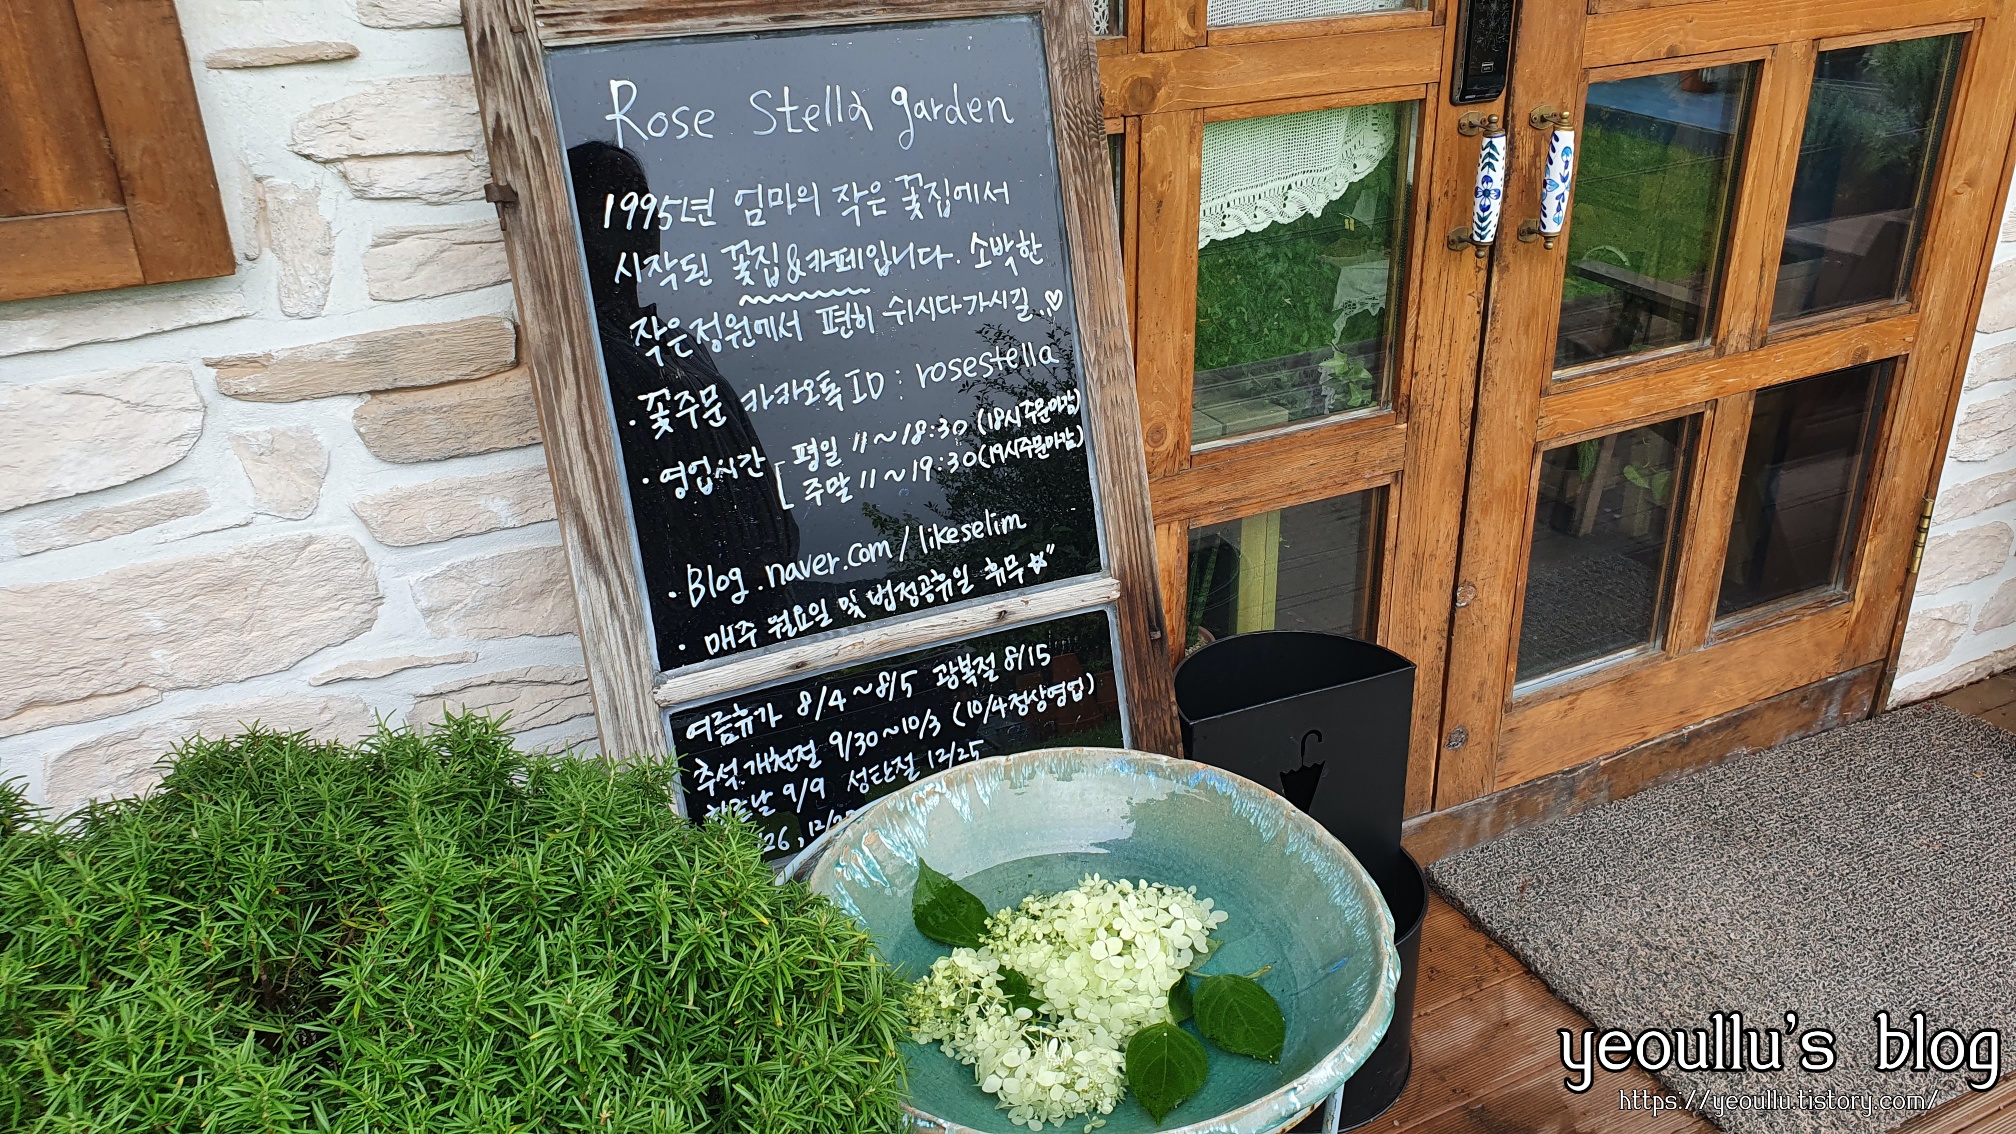 Rose Stella garden
1995년 엄마의 작은 꽃집에서
시작된 꽃집&카페입니다. 소박한
작은정원에서 편히 쉬시다가시길..♡
· 꽃주문 카카오톡 ID : rosestella
· 영업시간 [ 평일 11~18:30 (18시주문마감)
[ 주말 11~19:30(19시주문마감)
· Blog.naver.com/likeselim
· 매주 월요일 및 법정공휴일 휴무☆"
여름휴가 8/4~8/5 광복절 8/15
추석.개천절 9/30~10/3 (10/4정상영업)
한글날 9/9 성탄절 12/25
yeoullu's blog
https://yeoullu.tistory.com/